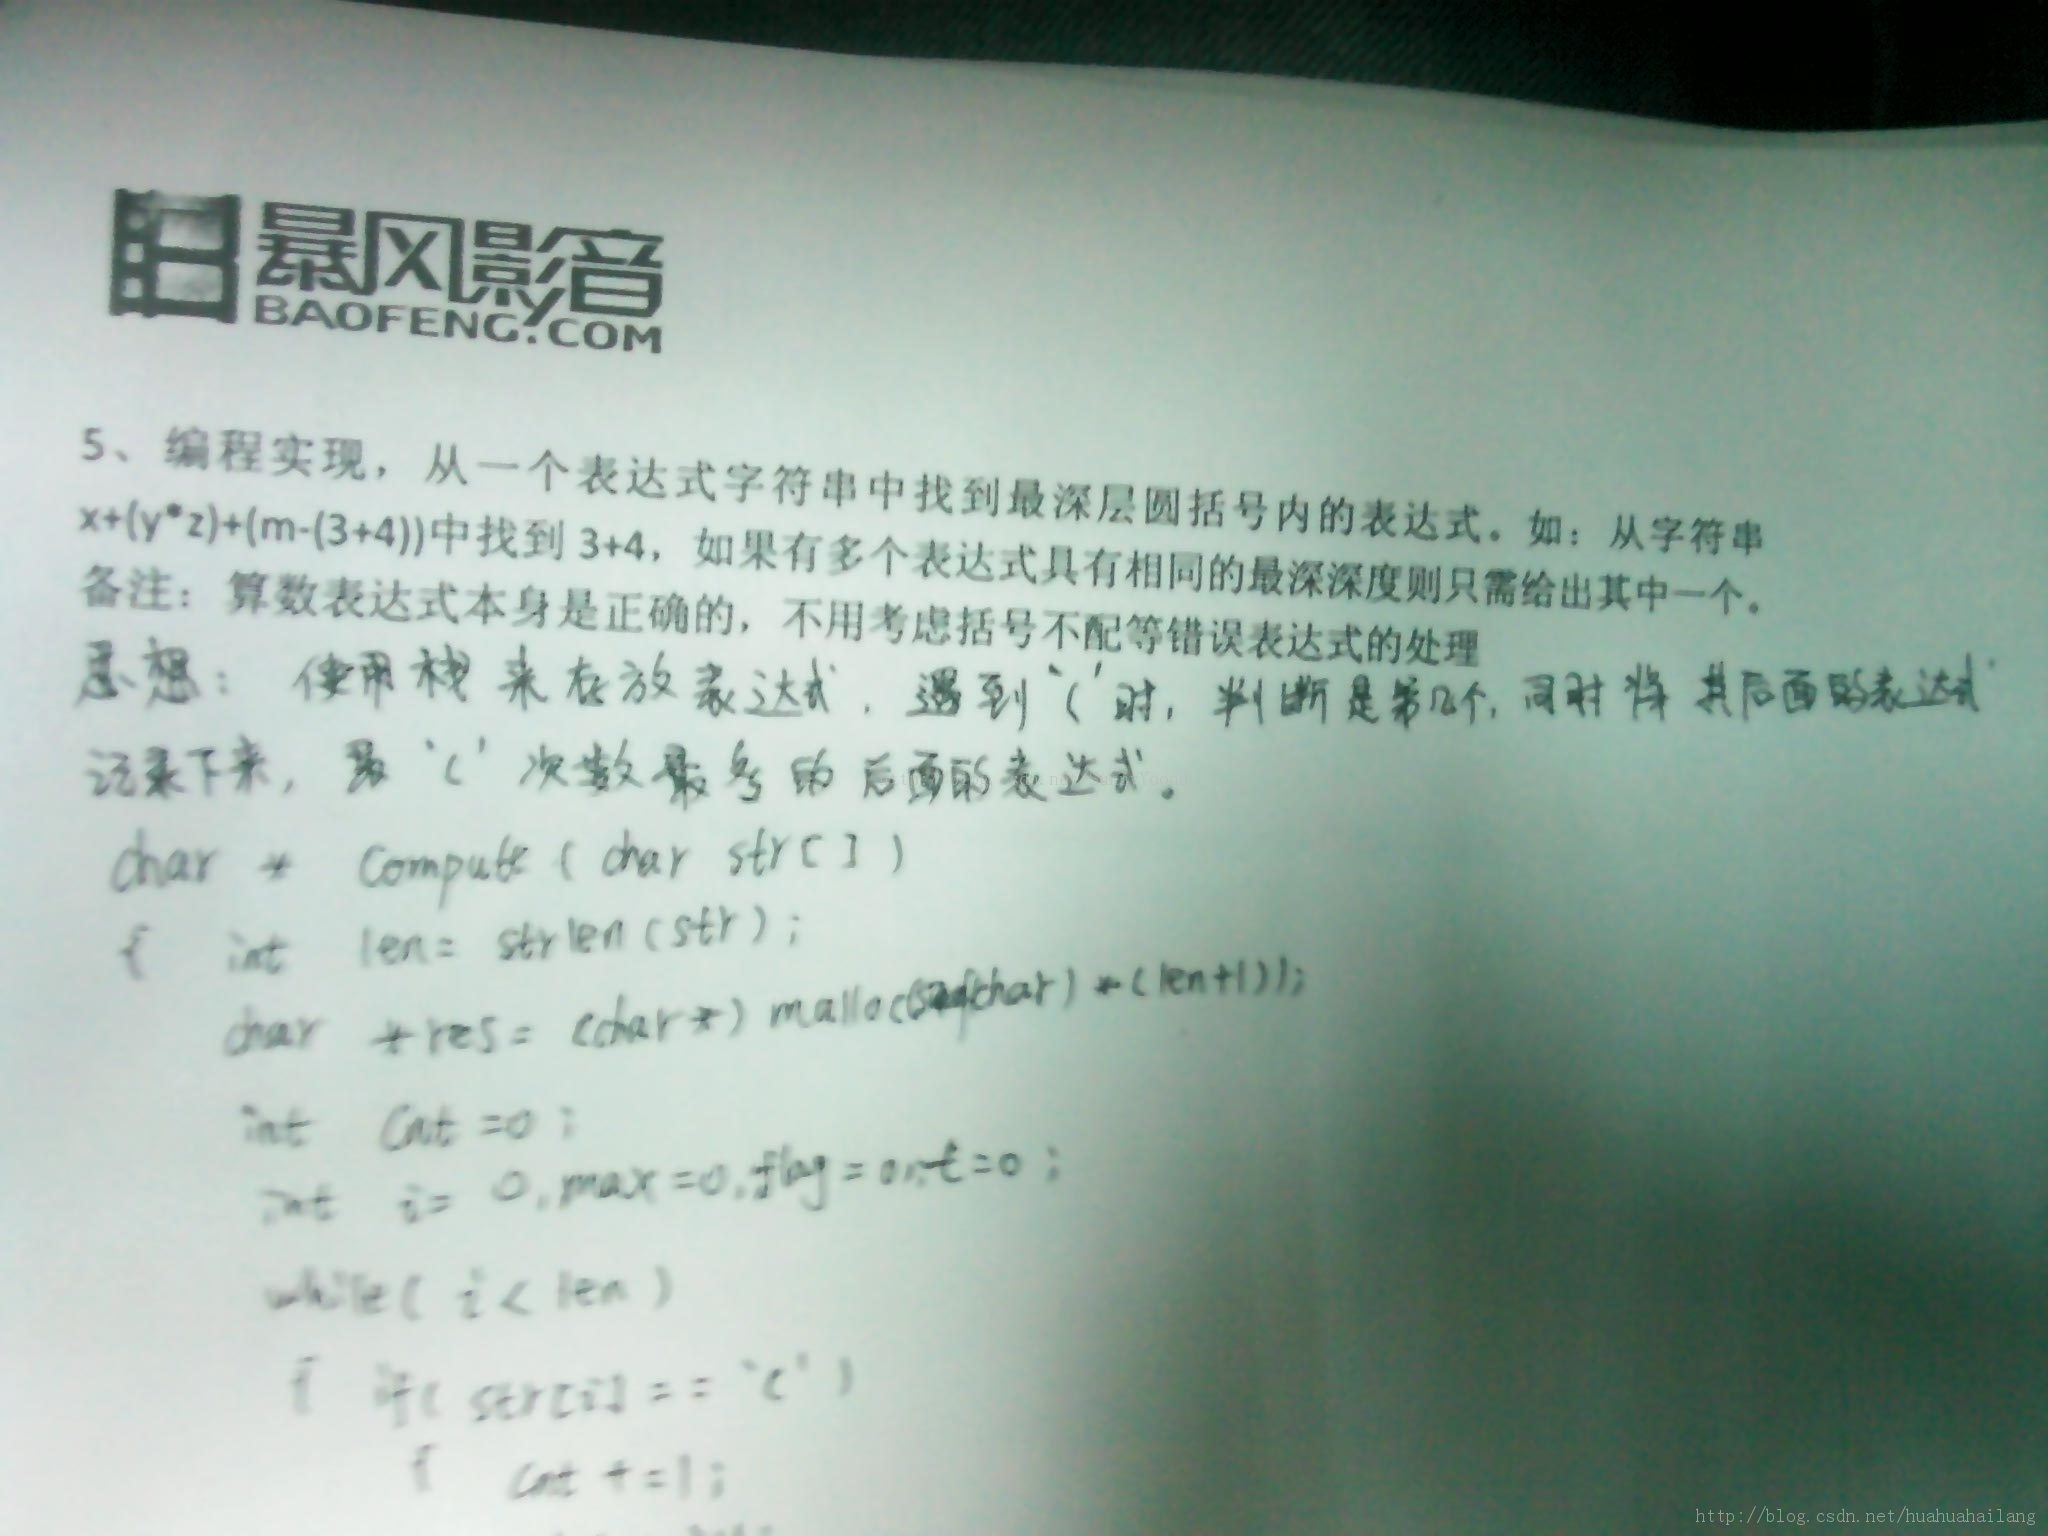 暴风影音
BAOFENG.COM
5、编程实现，从一个表达式字符串中找到最深层圆括号内的表达式。如：从字符串
x+(y*z)+(m-(3+4))中找到 3+4，如果有多个表达式具有相同的最深深度则只需给出其中一个。
备注：算数表达式本身是正确的，不用考虑括号不配等错误表达式的处理
思想：使用栈来存放表达式．遇到'('时，判断是第几个，同时将其后面的表达式
记录下来，'('次数最多的后面的表达式。
char * Compute ( char str[] )
{ int len= strlen(str);
char *res= (char*) malloc(sizeof(char)*(len+1));
int Cnt =0;
int i= 0,max=0,flag=0,t=0;
while( i < len )
{ if( str[i] == '(' )
{ Cnt +=1;
http://blog.csdn.net/huahuahailang